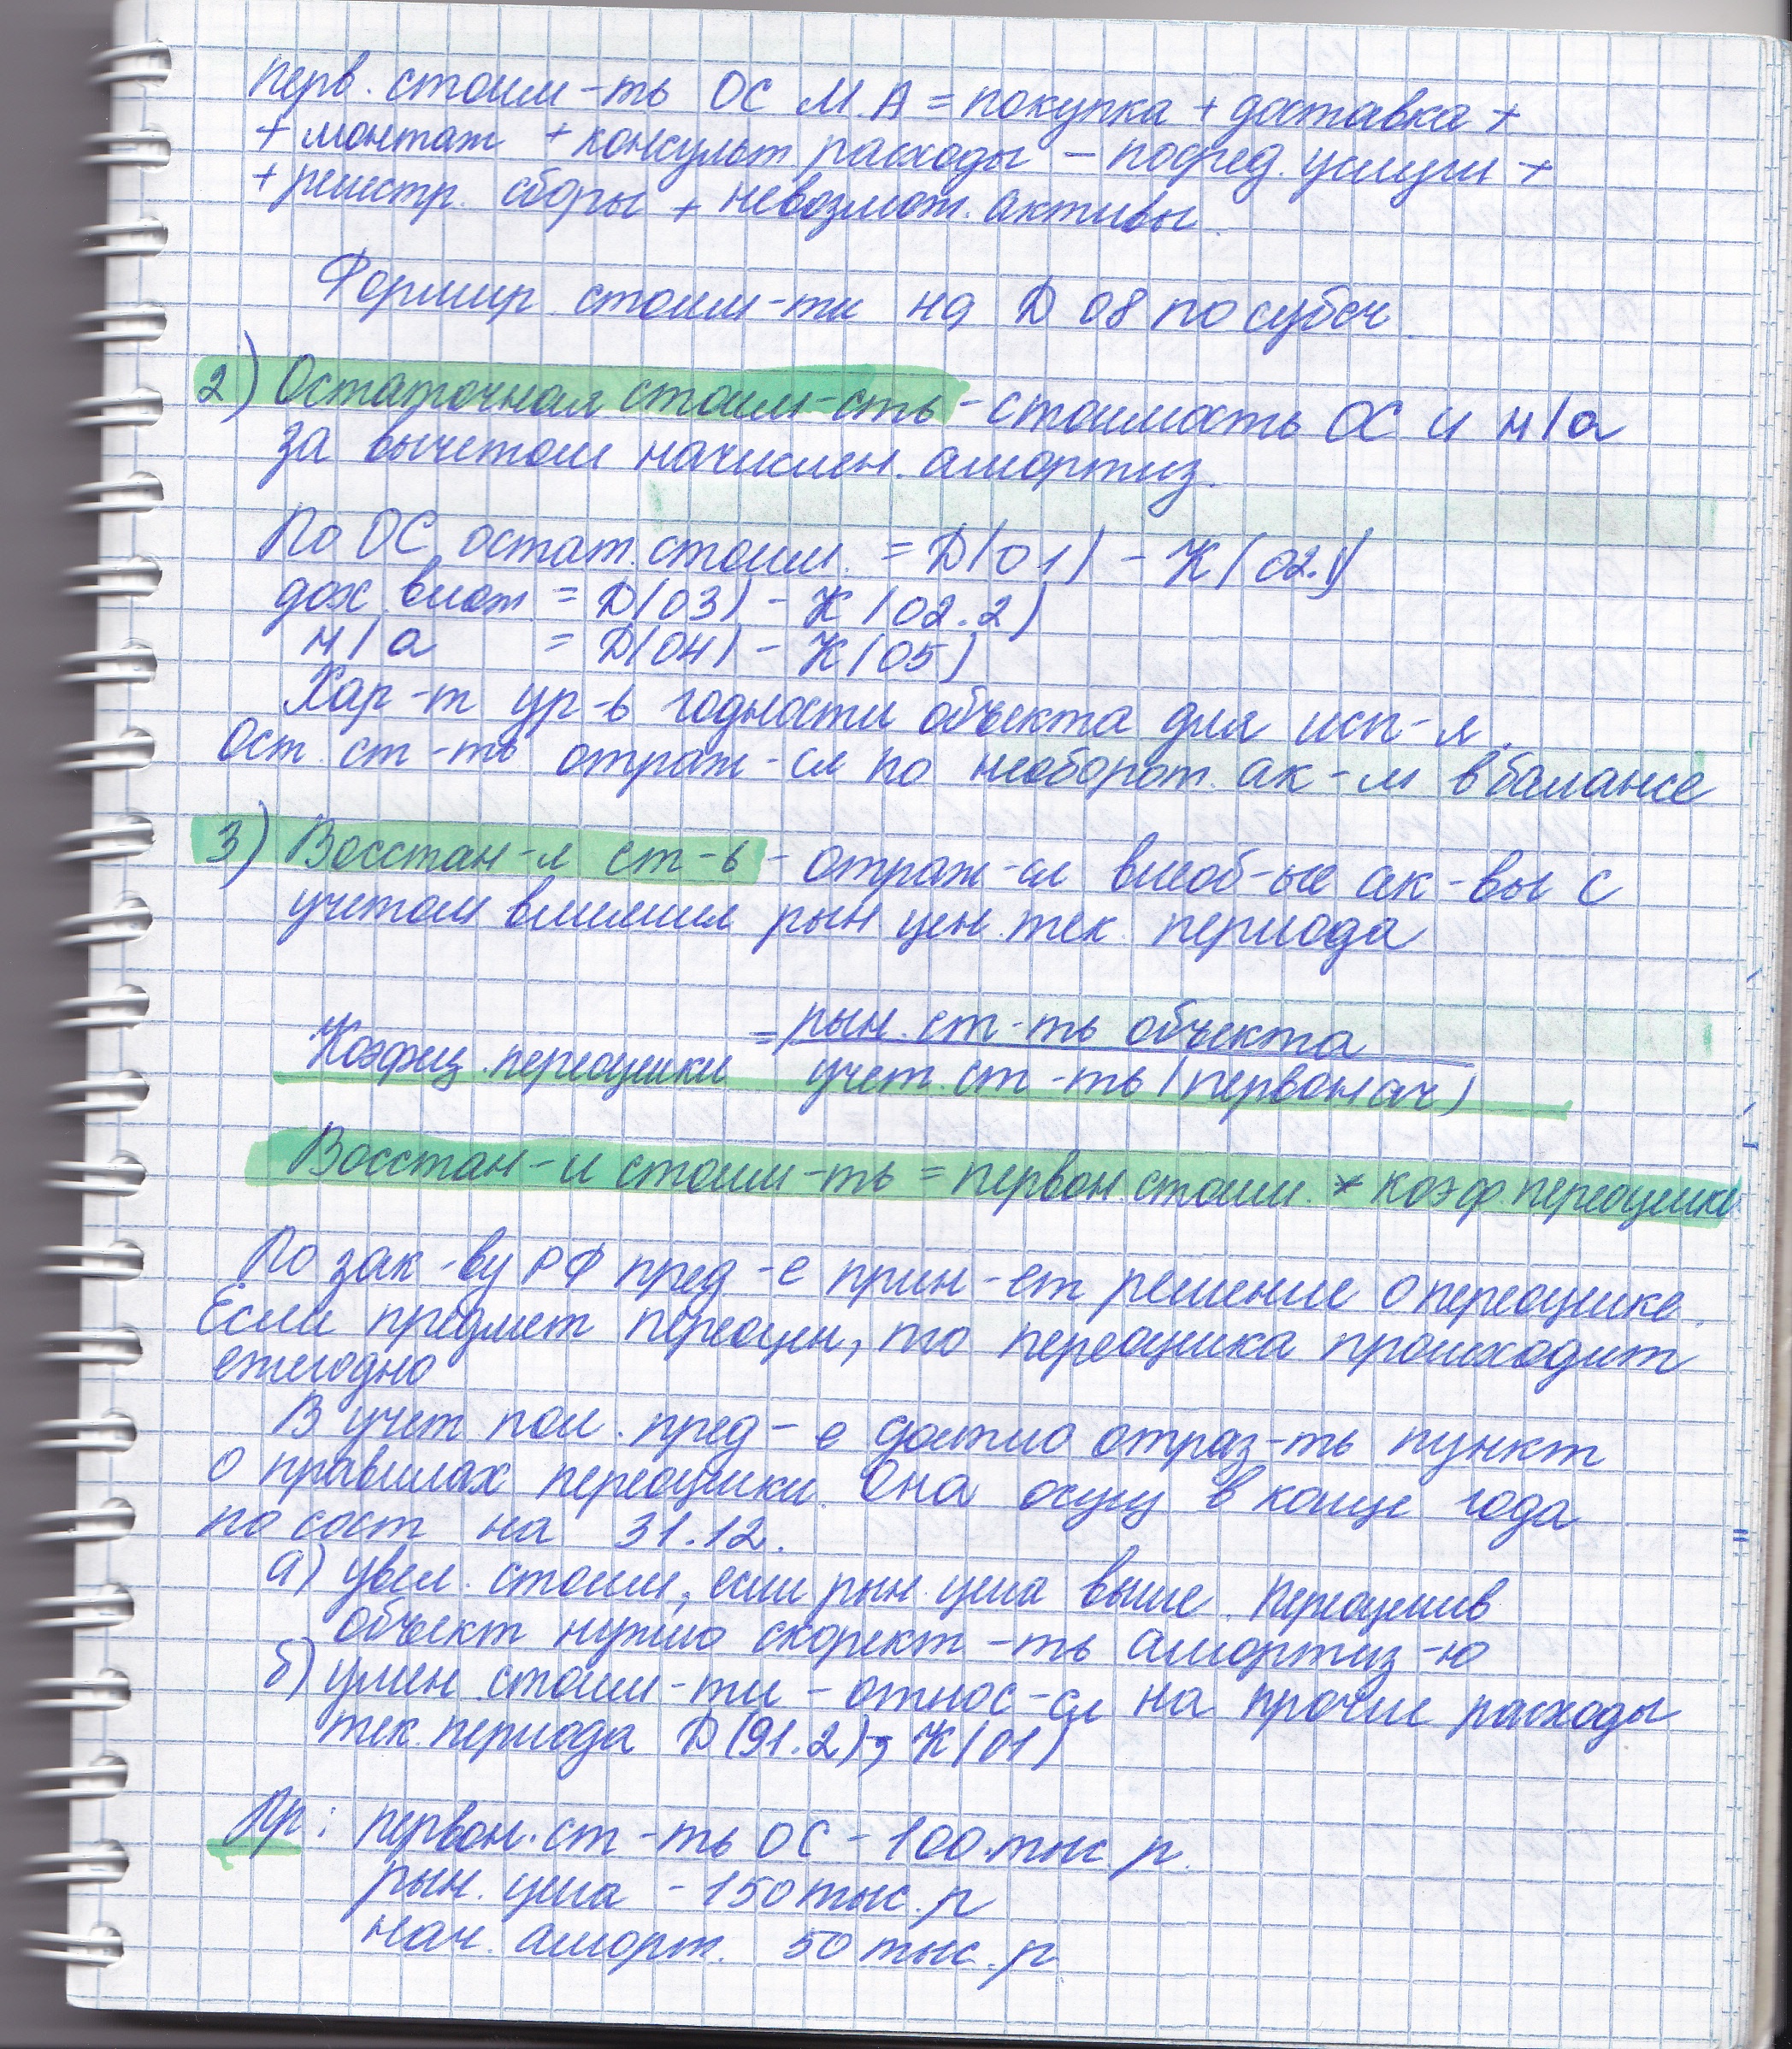 перв. стоим-ть ОС М.А = покупка + доставка +
+ монтаж + консульт расходы - посред. услуги +
+ регистр. сборы + невозмож. активы.
Формир. стоим-ти на Д 08 по субсч.
2) Остаточная стоим-сть - стоимость ОС и н/а
за вычетом начислен. амортиз.
По ОС остат. стоим. = Д(01) - К(02.1)
дох. влож = Д(03) - К(02.2)
н/а = Д(04) - К(05)
Хар-т ур-ь годности объекта для исп-я.
Ост. ст-ть отраж-ся по необорот. ак-м в балансе
3) Восстан-я ст-ь - отраж-ся внеоб-ые ак-вы с
учетом влияния рын цен. тек. периода
Коэфиц. переоценки = рын. ст-ть объекта
учет. ст-ть (первонач)
Восстан-и стоим-ть = первон. стоим. * коэф. переоценки
По зак-ву РФ пред-е прин-ет решение о переоценке.
Если предмет переоцен, то переоценка происходит
ежегодно
В учет пол. пред-е должно отраз-ть пункт
о правилах переоценки. Она осущ в конце года
по сост на 31.12.
а) увел. стоим, если рын. цена выше. Переоценив
объект нужно скорект-ть амортиз-ю
б) умен. стоим-ти - относ-ся на прочие расходы
тек. периода Д(91.2); К(01)
Пр: первон. ст-ть ОС - 100 тыс р.
рын. цена - 150 тыс. р
нач. аморт. 50 тыс. р